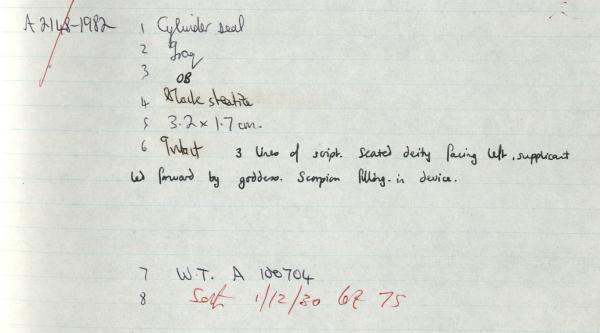 A 2148-1982 1 Cylinder seal
2 Iraq
3 OB
4 Black steatite
5 3.2 x 1.7 cm.
6 Intact 3 lines of script. Seated deity facing left, supplicant
led forward by goddess. Scorpion filling-in device.
7 W.T. A 100704
8 1/12/80 75